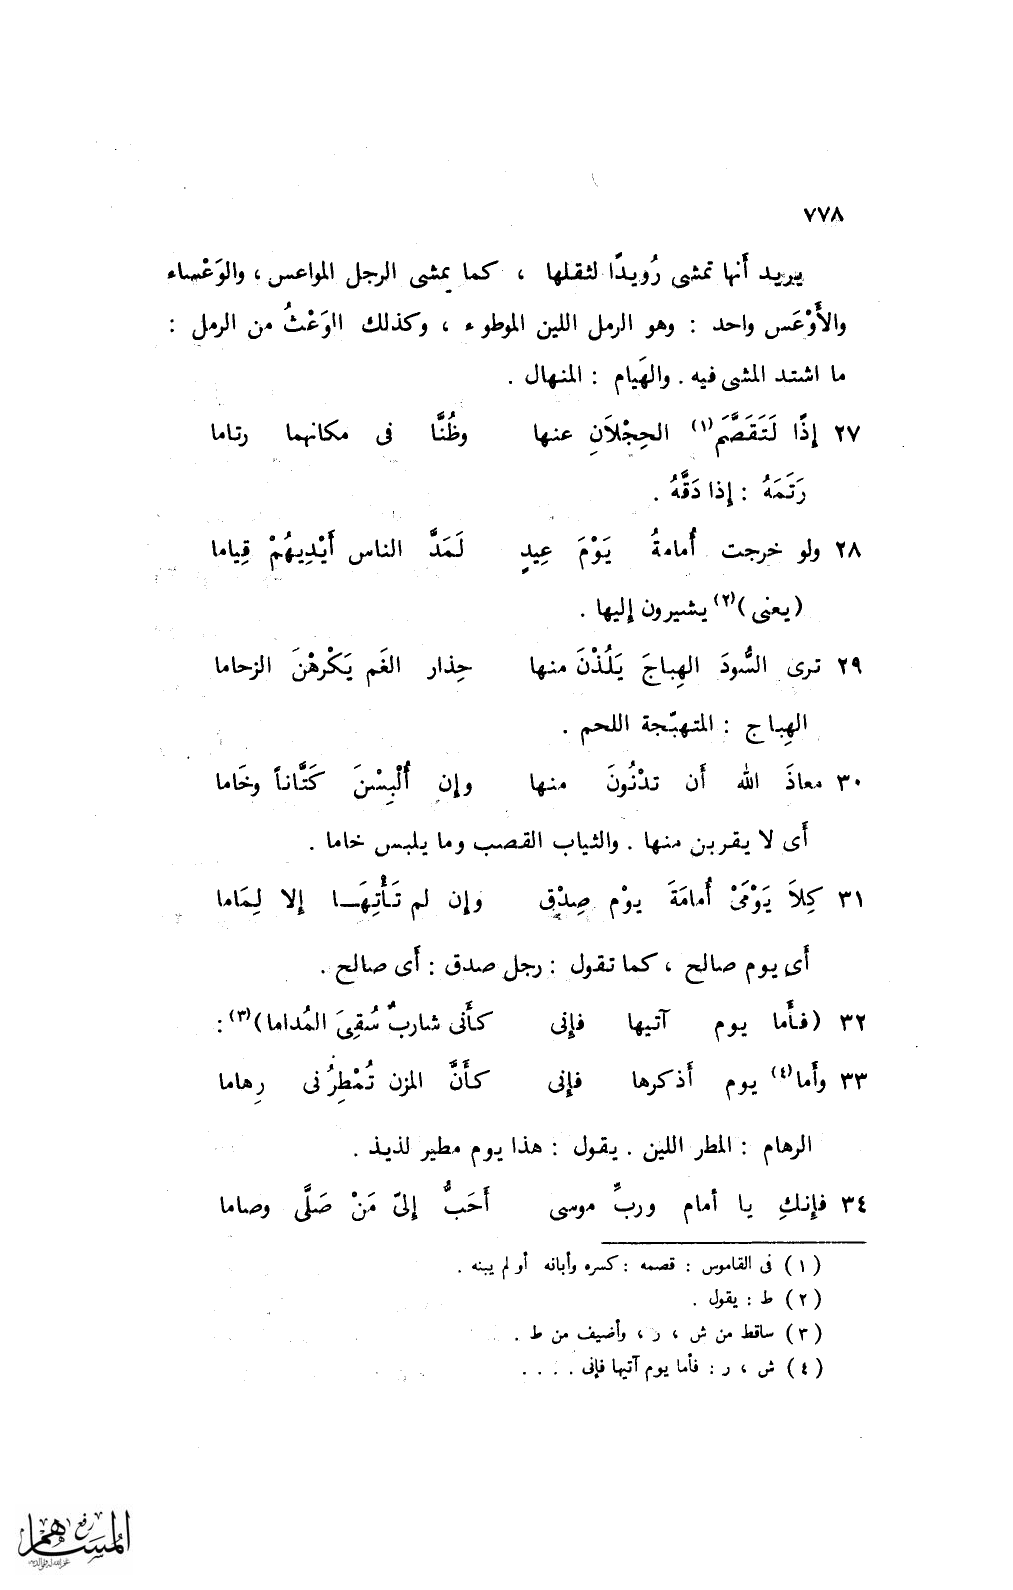 ٧٧٨
يريد أَنها تمشى رُويدًا لثقلها ، كما يمشى الرجل المواعس ، والوَعْساء
والأَوْعَس واحد : وهو الرمل اللين الموطوء ، وكذلك الوَعْثُ من الرمل :
ما اشتد المشى فيه . والهَيام : المنهال .
٢٧ إِذًا لَتَقَصَّمَ(١) الحِجْلاَنِ عنها وظُنَّا فى مكانهما رتاما
رَتَمَهُ : إِذا دَقَّهُ .
٢٨ ولو خرجت أُمامةُ يَوْمَ عِيدٍ لَمَدَّ الناس أَيْدِيهُمْ قِياما
(يعنى)(٢) يشيرون إِليها .
٢٩ ترى السُّودَ الهِباجَ يَلُذْنَ منها حِذار الغَم يَكْرهْنَ الزحاما
الهِباج : المتهبّجة اللحم .
٣٠ معاذَ الله أَن تدْنُونَ منها وإِن أُلْبِسْنَ كَتَّاناً وخَاما
أَى لا يقربن منها . والثياب القصب وما يلبس خاما .
٣١ كِلاَ يَوْمَىْ أُمامَةَ يوْم صِدْقٍ وإِن لم تَأْتِهَا إِلا لِمَاما
أَى يوم صالح ، كما تقول : رجل صدق : أَى صالح .
٣٢ (فأَما يوم آتيها فإِنى كأَنى شاربٌ سُقِىَ المُداما)(٣) :
٣٣ وأَما(٤) يوم أَذكرها فإِنى كأَنَّ المزن تُمْطِرُنى رِهاما
الرهام : المطر اللين . يقول : هذا يوم مطير لذيذ .
٣٤ فإِنكِ يا أمام وربِّ موسى أَحَبُّ إِلىّ مَنْ صَلَّى وصاما
(١) فى القاموس : قصمه : كسره وأبانه أو لم يبنه .
(٢) ط : يقول .
(٣) ساقط من ش ، ر ، وأضيف من ط .
(٤) ش ، ر : فأما يوم آتيها فإنى . . . .
رفع
المساهم